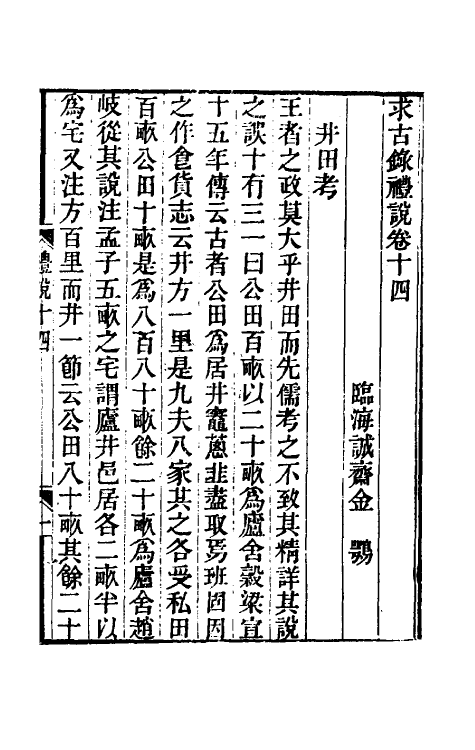 求古錄禮說卷十四
臨海誠齋金鶚
井田考
王者之政莫大乎井田而先儒考之不致其精詳其說
之誤十有三一曰公田百畝以二十畝爲廬舍穀梁宣
十五年傳云古者公田爲居井竈蔥韭盡取焉班固因
之作食貨志云井方一里是九夫八家共之各受私田
百畝公田十畝是爲八百八十畝餘二十畝爲廬舍趙
岐從其說注孟子五畝之宅謂廬井邑居各二畝半以
爲宅又注方百里而井一節云公田八十畝其餘二十
禮說十四
一